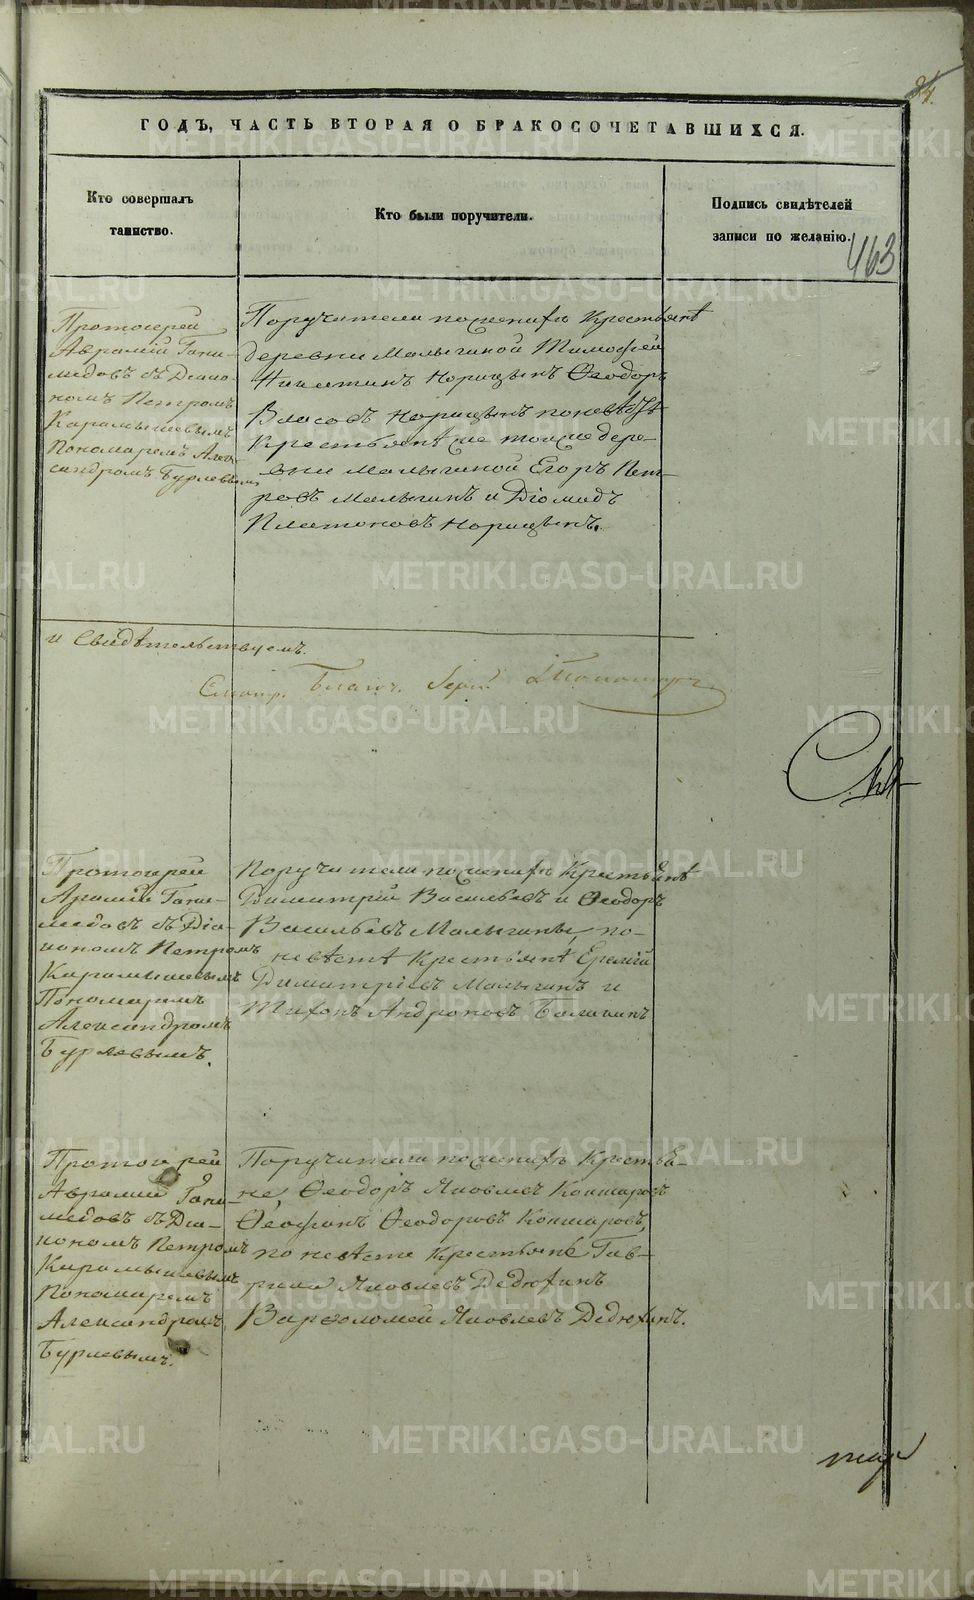 ГОДЪ, ЧАСТЬ ВТОРАЯ О БРАКОСОЧЕТАВШИХСЯ.
Кто совершалъ
таинство.
Кто были поручители.
Подпись свидѣтелей
записи по желанію.
463
Протоіерей
Аврамій Гани-
медовъ съ Діако-
номъ Петромъ
Карамышевымъ
Пономаремъ Алек-
сандромъ Бурлевымъ
Поручители по женихѣ Крестьянѣ
деревни Малыгиной Тимофей
Никитинъ Норицынъ Ѳеодоръ
Власовъ Норицынъ по невѣстѣ
Крестьянѣ же тоя же дере-
вни Малыгиной Егоръ Пет-
ровъ Малыгинъ и Діомидъ
Платоновъ Норицынъ.
и Свидѣтельствуемъ.
Протоіерей
Аврамій Гани-
медовъ съ Діа-
кономъ Петромъ
Карамышевымъ
Пономаремъ
Александромъ
Бурлевымъ.
Поручители по женихѣ Крестьянѣ
Димитрій Васильевъ и Ѳеодоръ
Васильевъ Малыгины, по-
невѣстѣ Крестьянѣ Еремій
Димитріевъ Малыгинъ и
Тихонъ Андроновъ
Протоіерей
Аврамій Гани-
медовъ съ Діа-
кономъ Петромъ
Карамышевымъ
Пономаремъ
Александромъ
Бурлевымъ.
Поручители по женихѣ Крестья-
не, Ѳеодоръ Яковлевъ Кокшаровъ
Ѳеофанъ Ѳеодоровъ Кокшаровъ,
по невѣстѣ Крестьянѣ Гав-
рило Яковлевъ Дедюхинъ
Варѳоломей Яковлевъ Дедюхинъ.
METRIKI.GASO-URAL.RU